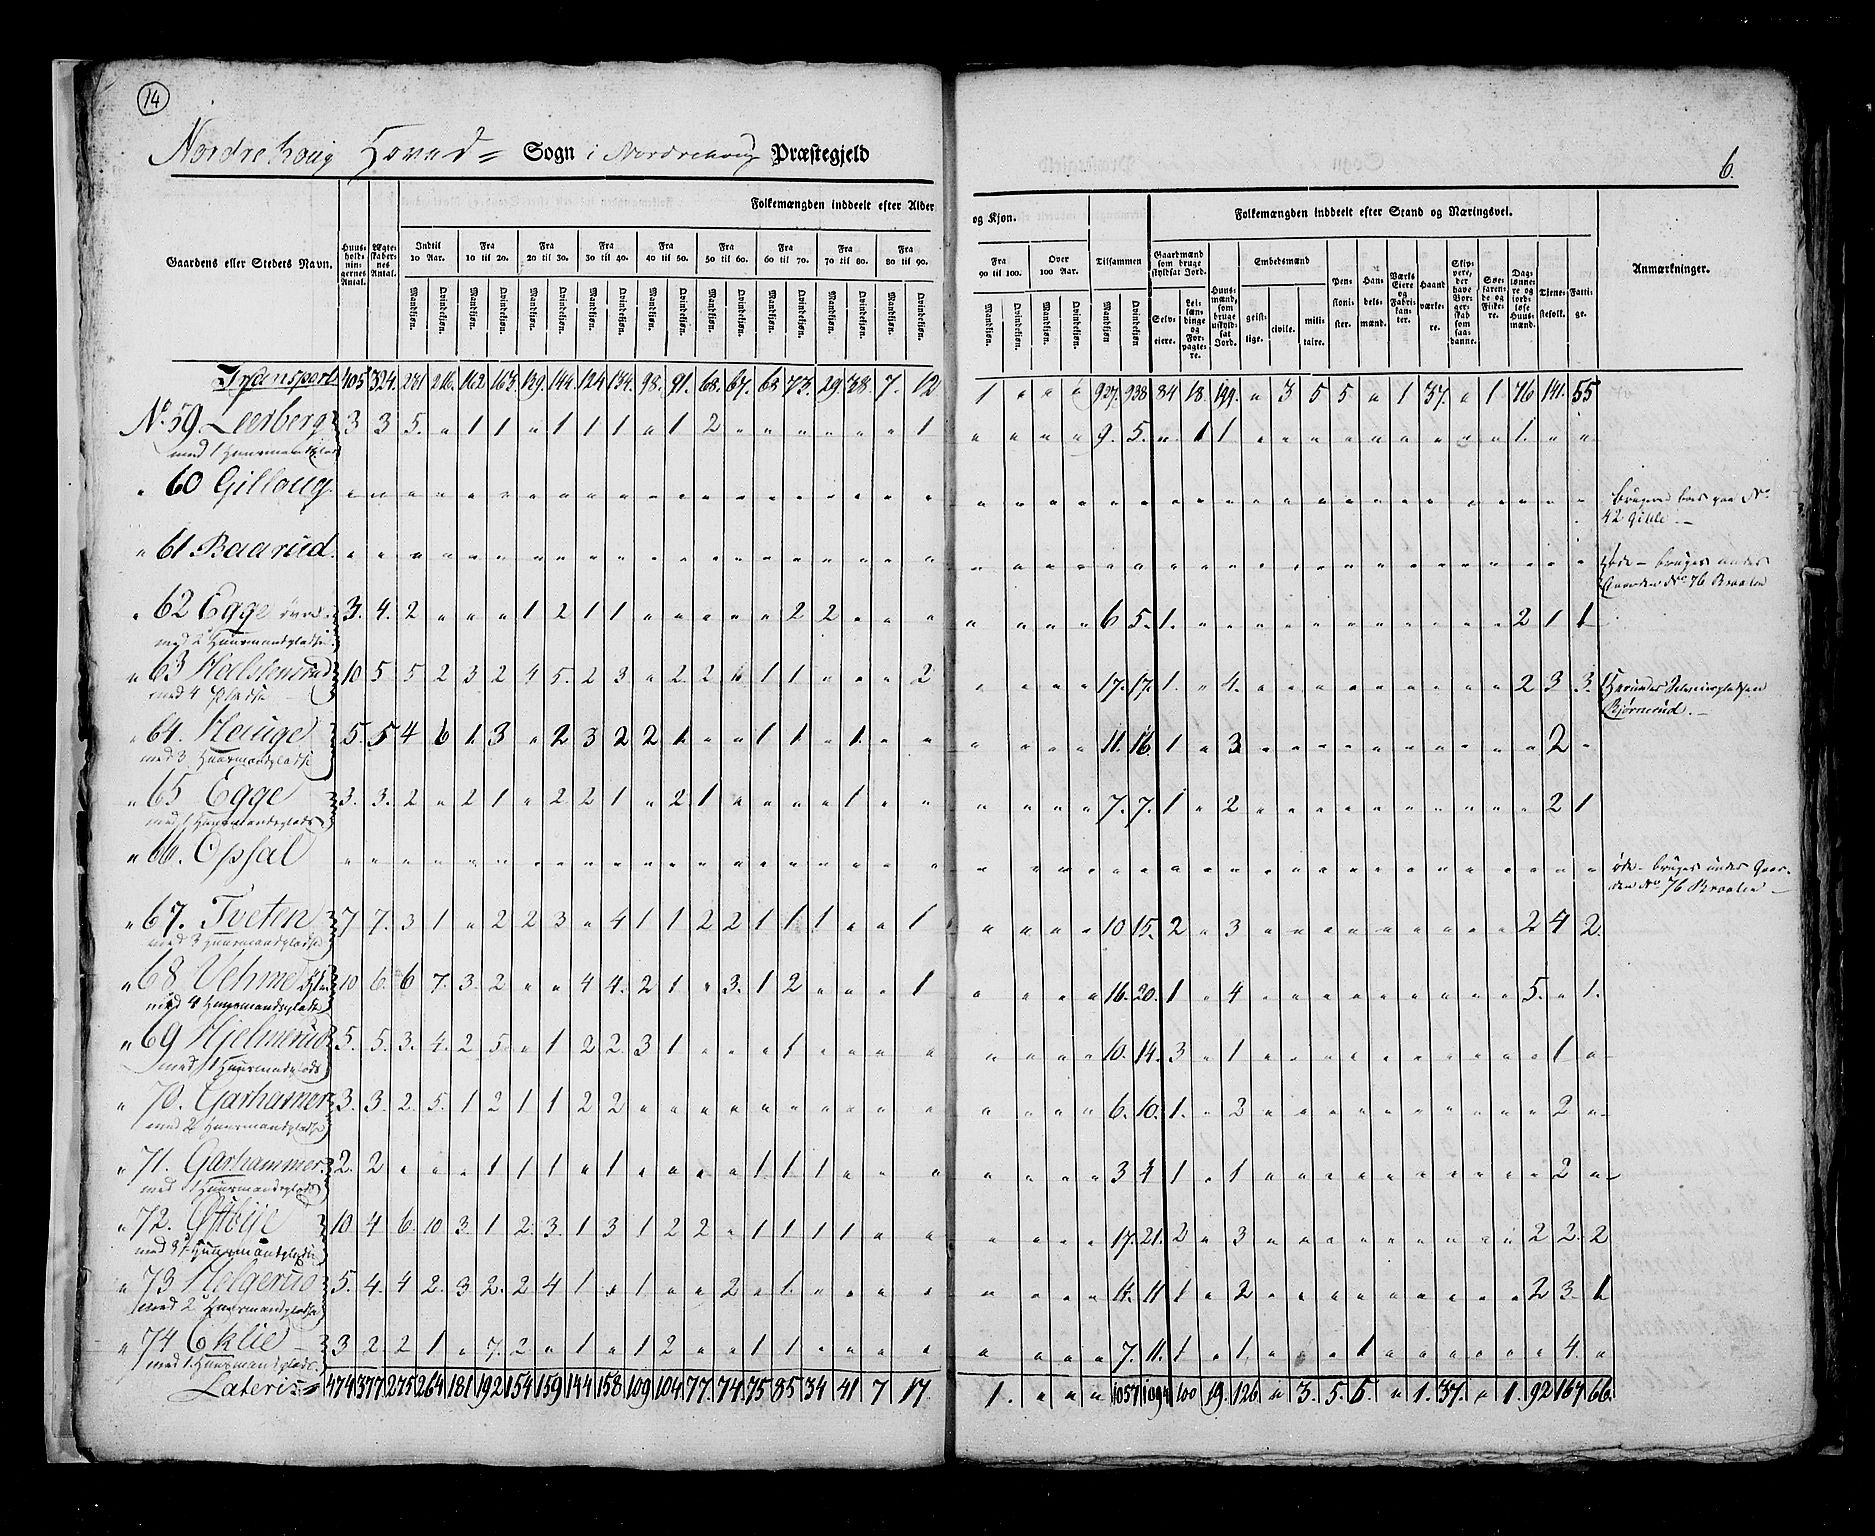 14
Nordrehoug Hoved = Sogn i Nordrehoug Præstegjeld
6.
Folkemængden inddeelt efter Alder og Kjøn.
Folkemængden inddeelt efter Stand og Næringsvei.
Gaardens eller Stedets Navn.
Huusholdningernes Antal.
Ægteskabernes Antal.
Indtil 10 Aar.
Fra 10 til 20.
Fra 20 til 30.
Fra 30 til 40.
Fra 40 til 50.
Fra 50 til 60.
Fra 60 til 70.
Fra 70 til 80.
Fra 80 til 90.
Fra 90 til 100.
Over 100 Aar.
Tilsammen
Mandkiøn. Qvindekiøn.
Gaardmænd som bruge skyldsat Jord.
Selveiere.
Leilændinge og Forpagtere.
Huusmænd, som bruge uskyldsat Jord.
Embedsmænd
geistlige. civile. militaire.
Penstionister.
Handelsmænd.
Værks Eiere og Fabrikanter.
Haandværkere.
Skippere, der have Borgerskab som saadanne.
Søefarende og Fiskere.
Dagslønnere og jordløse Huusmænd.
Tjenestefolk.
Fattige.
Anmærkninger.
Transport 405 324 231 216 162 163 139 144 124 134 98 91 68 67 63 73 29 38 7 12 1 " " " 937 938 84 18 199 " 3 5 5 " 1 37 " 1 76 141 55
No 59. Leerberg 3 3 5 " 1 1 " 1 1 1 " 1 2 " " " " " " 1 " " " " 9 5 " 1 1 " " " " " " " " " 1 " "
" 60 Gilloug
Brugeren boer paa No
42 Gihle. —
" 61 Baarud
øde — bruges under
Gaarden No 76 Braaten
" 62 Egge øvre 3 4 2 " " " 1 2 1 1 " " " " " 2 2 " " " " " " " 6 5 1 " " " " " " " " " " " 2 1 1
med 2 Huusmandspladse
" 63 Hallstenrud 10 5 5 2 3 2 4 5 2 3 " 2 2 " 1 1 " " " 2 " " " " 17 17 1 " 4 " " " " " " " " " 2 3 3
med 4 Pladse
Bjørnerud. —
" 64. Houge 5 5 4 6 1 3 " 2 3 2 2 1 " " 1 1 " 1 " " " " " " 11 16 1 " 3 " " " " " " " " " " 2 "
med 3 Huusmandspladse
" 65 Egge 3 3 2 " 2 1 " 2 2 1 " 2 1 " " " " 1 " " " " " " 7 7 1 " 2 " " " " " " " " " " 2 1
med 1 Huusmandsplads
" 66. Opsal
øde — bruges under Gaarden
No 76 Braaten —
" 67. Tveten 7 7 3 1 " 2 2 3 " 4 1 1 2 2 1 1 1 " " 1 " " " " 10 15 2 " 3 " " " " " " " " " 2 4 2
med 3 Huusmandspladse
" 68 Vehme 10 6 6 7 3 2 " " 4 4 2 1 " 3 1 2 " " " 1 " " " " 16 20 1 " 4 " " " " " " " " " 5 " 1
med 4 Huusmandspladse
" 69 Hjelmerud 5 5 3 4 2 5 " 1 2 2 3 1 " " " 1 " " " " " " " " 10 14 3 " 1 " " " " " " " " " " 1 "
med 1 Huusmandsplads
" 70. Garhamer 3 3 2 5 1 2 1 1 2 2 " " " " " " " " " " " " " " 6 10 1 " 2 " " " " " " " " " " 2 "
med 2 Huusmandspladse
" 71. Garhammer 2 2 " " " 1 1 1 " 1 " " " " 1 1 1 " " " " " " " 3 4 1 " 1 " " " " " " " " " " 2 "
med 1 Huusmandsplads
" 72. Østbye 10 4 6 10 3 1 2 3 1 3 1 2 2 " 1 1 1 1 " " " " " " 17 21 2 " 3 " " " " " " " " " 2 2 2
med 3 Huusmandspladse
" 73 Helgerud 5 4 4 2 3 2 2 4 1 " 1 " " 2 " 1 " " " " " " " " 11 11 1 " 2 " " " " " " " " " 2 3 1
med 2 Huusmandspladse
" 74 Eklie 3 2 2 1 " 7 2 " 1 " 1 2 " " 1 1 " " " " " " " " 7 11 1 " 1 " " " 1 " " " " " " 4 "
med 1 Huusmandsplads
Lateris = 474 377 275 264 181 192 154 159 144 158 109 104 77 74 75 85 34 41 7 17 1 " " " 1057 1094 100 19 126 " 3 5 6 " 1 37 " 1 92 167 66